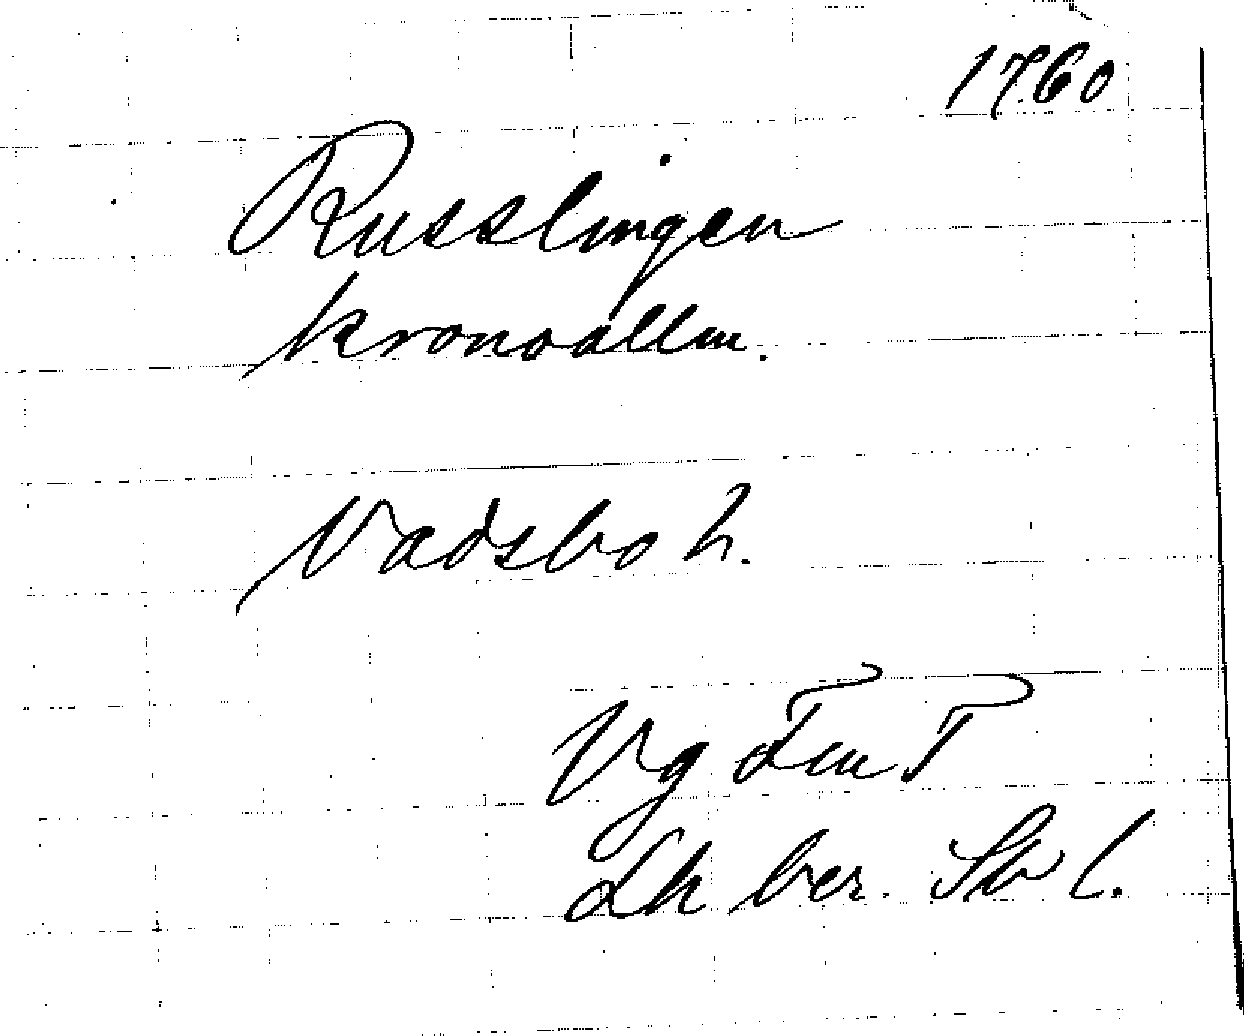 1760
Russlingen
kronoallm.
Vadsbo h.
Vg
Lh ber.